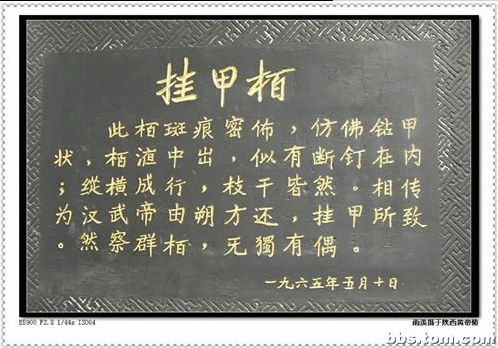 挂甲柏
此柏斑痕密佈，仿佛钻甲
状，柏渣中出，似有断钉在内
；纵横成行，枝干皆然。相传
为汉武帝由朔方还，挂甲所致
。然察群柏，无獨有偶。
一九六五年五月十日
E5900 F2.8 1/44s ISO64
雨溪摄于陕西黄帝陵
bbs.tom.com